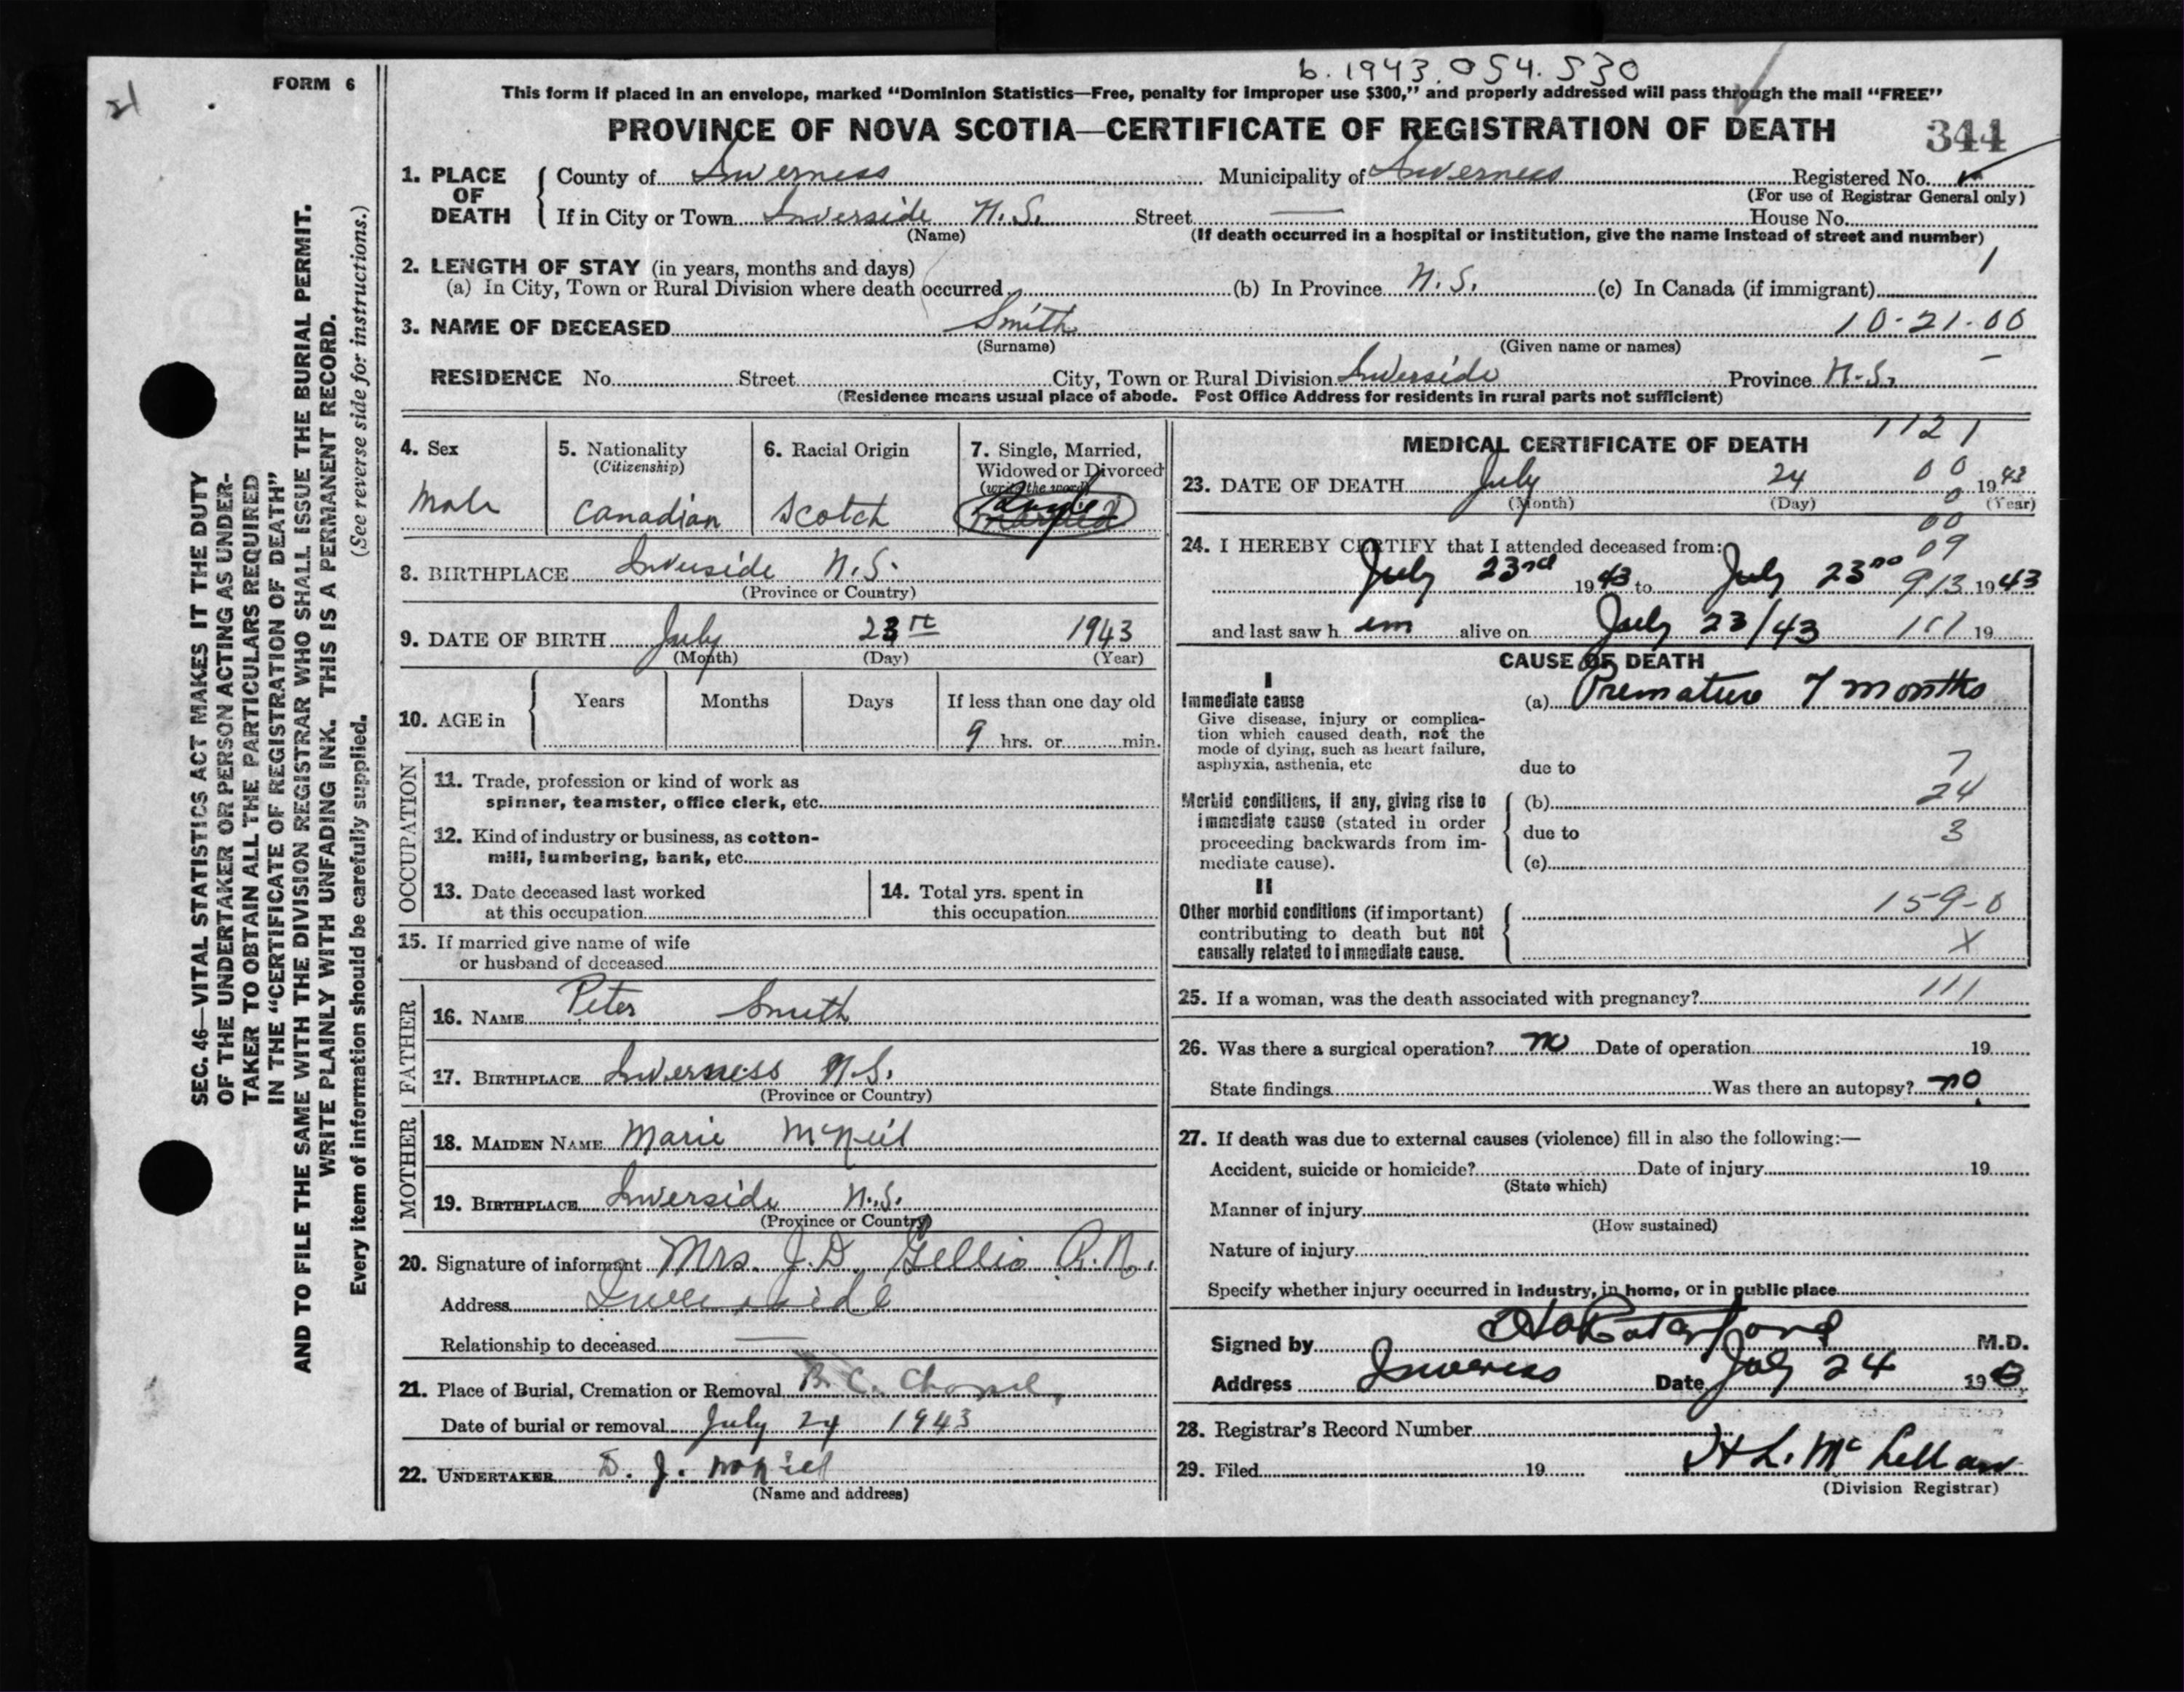 b. 1943. 054. 530
21
FORM 6
This form if placed in an envelope, marked “Dominion Statistics—Free, penalty for improper use $300,” and properly addressed will pass through the mail “FREE”
PROVINCE OF NOVA SCOTIA—CERTIFICATE OF REGISTRATION OF DEATH 344
1. PLACE OF DEATH
County of Inverness Municipality of Inverness Registered No.
(For use of Registrar General only)
If in City or Town Inverside N.S. Street — House No.
(Name) (If death occurred in a hospital or institution, give the name instead of street and number)
1
2. LENGTH OF STAY (in years, months and days)
(a) In City, Town or Rural Division where death occurred (b) In Province N.S. (c) In Canada (if immigrant)
3. NAME OF DECEASED Smith 10-21-00
(Surname) (Given name or names)
RESIDENCE No. Street City, Town or Rural Division Inverside Province N.S.
(Residence means usual place of abode. Post Office Address for residents in rural parts not sufficient)
4. Sex
Male
5. Nationality
(Citizenship)
Canadian
6. Racial Origin
Scotch
7. Single, Married,
Widowed or Divorced
(write the word)
8. BIRTHPLACE Inverside N.S.
(Province or Country)
9. DATE OF BIRTH July 23 1943
(Month) (Day) (Year)
10. AGE in
Years Months Days If less than one day old
9 hrs. or min.
OCCUPATION
11. Trade, profession or kind of work as
spinner, teamster, office clerk, etc.
12. Kind of industry or business, as cotton-
mill, lumbering, bank, etc.
13. Date deceased last worked
at this occupation
14. Total yrs. spent in
this occupation
15. If married give name of wife
or husband of deceased
FATHER
16. NAME Peter Smith
17. BIRTHPLACE Inverness N.S.
(Province or Country)
MOTHER
18. MAIDEN NAME Marie McNeil
19. BIRTHPLACE Inverside N.S.
(Province or Country)
20. Signature of informant Mrs. J. D. Gellis R.N.
Address Inverside
Relationship to deceased —
21. Place of Burial, Cremation or Removal
Date of burial or removal July 24 1943
22. UNDERTAKER D. J.
(Name and address)
MEDICAL CERTIFICATE OF DEATH 1121
23. DATE OF DEATH July 24 00 0 1943
(Month) (Day) (Year)
00
24. I HEREBY CERTIFY that I attended deceased from: 09
July 23rd 1943 to July 23rd 913 1943
and last saw h im alive on July 23/43 111 19
CAUSE OF DEATH
I
Immediate cause
Give disease, injury or complica-
tion which caused death, not the
mode of dying, such as heart failure,
asphyxia, asthenia, etc
(a) Premature 7 months
due to 7
Morbid conditions, if any, giving rise to
immediate cause (stated in order
proceeding backwards from im-
mediate cause).
(b) 24
due to 3
(c)
II
Other morbid conditions (if important)
contributing to death but not
causally related to immediate cause.
159-0
X
25. If a woman, was the death associated with pregnancy? 111
26. Was there a surgical operation? no Date of operation 19
State findings Was there an autopsy? no
27. If death was due to external causes (violence) fill in also the following:—
Accident, suicide or homicide? Date of injury 19
(State which)
Manner of injury
(How sustained)
Nature of injury
Specify whether injury occurred in industry, in home, or in public place
Signed by M.D.
Address Inverness Date July 24 19
28. Registrar's Record Number
29. Filed 19 H L. McLellan
(Division Registrar)
SEC. 46—VITAL STATISTICS ACT MAKES IT THE DUTY
OF THE UNDERTAKER OR PERSON ACTING AS UNDER-
TAKER TO OBTAIN ALL THE PARTICULARS REQUIRED
IN THE “CERTIFICATE OF REGISTRATION OF DEATH”
AND TO FILE THE SAME WITH THE DIVISION REGISTRAR WHO SHALL ISSUE THE BURIAL PERMIT.
WRITE PLAINLY WITH UNFADING INK. THIS IS A PERMANENT RECORD.
Every item of information should be carefully supplied. (See reverse side for instructions.)